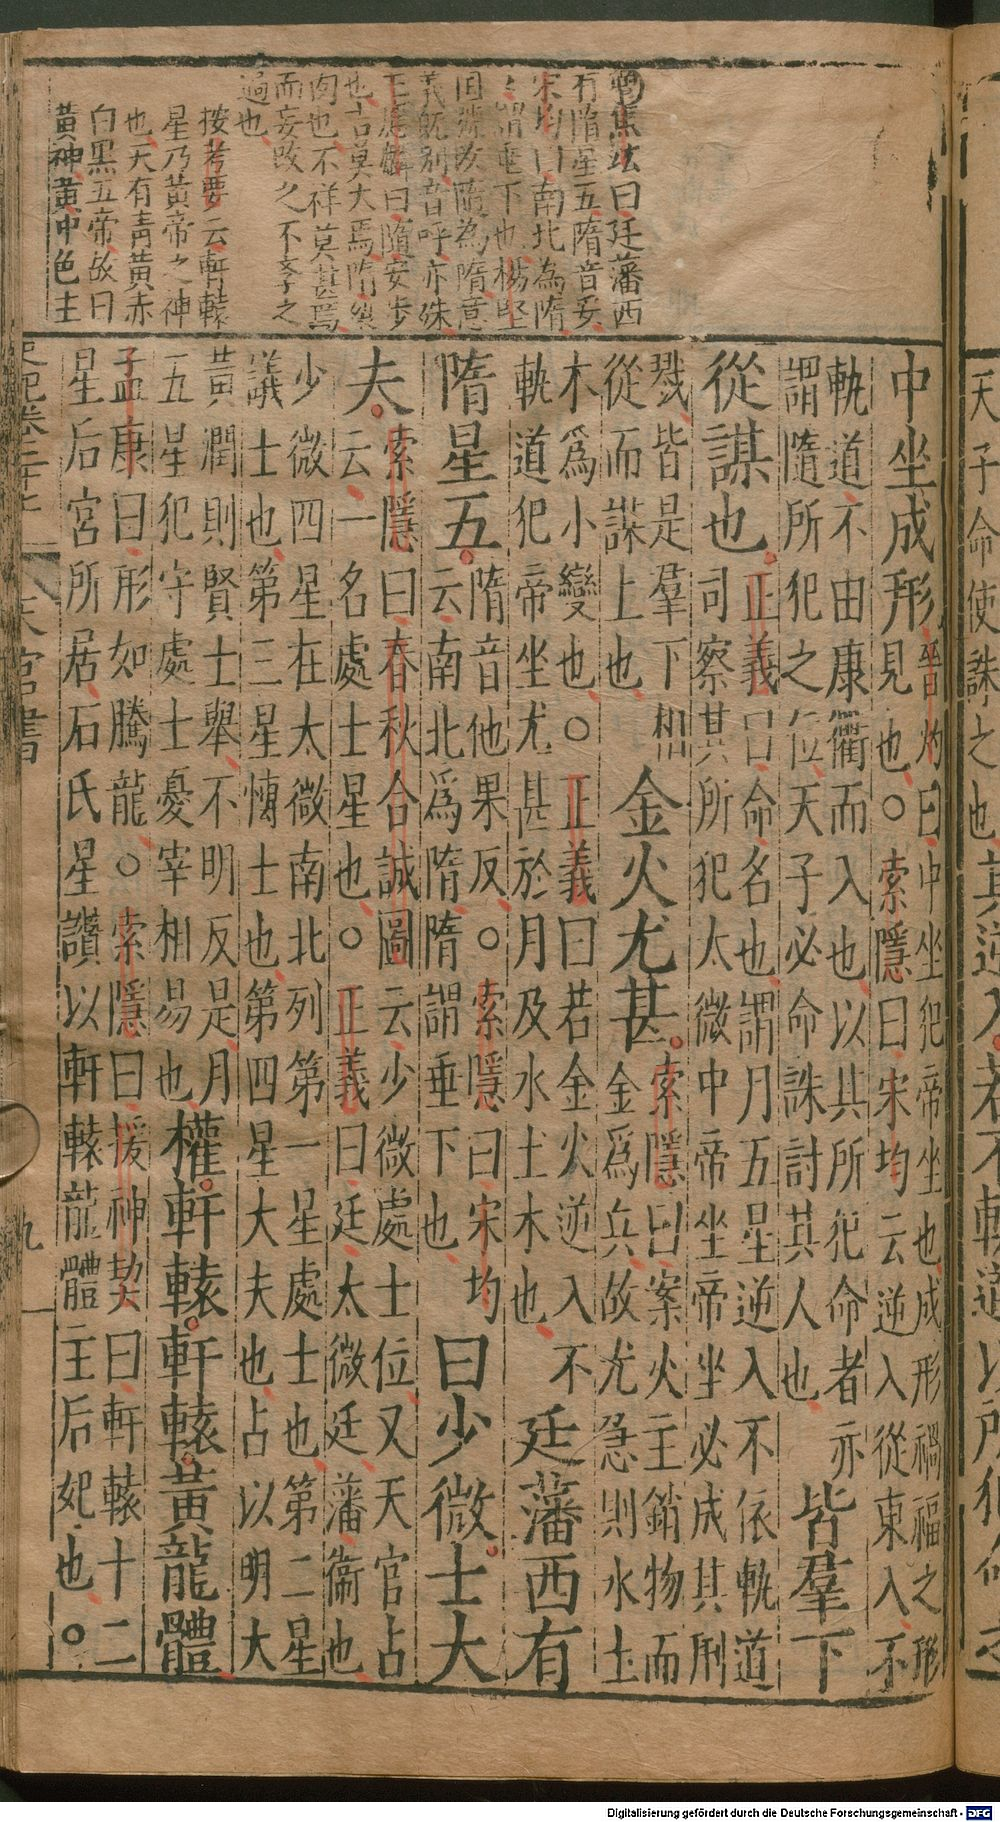 天子命使誅之也其逆入若不軌道以所犯命之
焦竑曰廷藩西
有隋星五隋音妥
宋均曰南北為隋
又謂垂下也楊堅
因隨改隋為隋意
義旣別音呼亦殊
王應麟曰隨安步
也吉莫大焉隋裂
肉也不祥莫甚焉
而妄改之不孝之
過也
按考要云軒轅
星乃黃帝之神
也天有青黃赤
白黑五帝故曰
黃神黃中色主
中坐成形
晉灼曰中坐犯帝坐也成形禍福之形
見也○索隱曰宋均云逆入從東入不
軌道不由康衢而入也以其所犯命者亦
謂隨所犯之位天子必命誅討其人也
皆羣下
從謀也
正義曰命名也謂月五星逆入不依軌道
司察其所犯太微中帝坐帝坐必成其刑
戮皆是羣下相
從而謀上也
金火尤甚
索隱曰案火主銷物而
金為兵故尤急則水土
木爲小變也○正義曰若金火逆入不
軌道犯帝坐尤甚於月及水土木也
廷藩西有
隋星五
隋音他果反○索隱曰宋均
云南北爲隋隋謂垂下也
曰少微士大
夫
索隱曰春秋合誠圖云少微處士位又天官占
云一名處士星也○正義曰廷太微廷藩衞也
少微四星在太微南北列第一星處士也第二星
議士也第三星博士也第四星大夫也占以明大
黃潤則賢士舉不明反是月
五星犯守處士憂宰相易也
權軒轅軒轅黃龍體
孟康曰形如騰龍○索隱曰援神契曰軒轅十二
星后宮所居石氏星讚以軒轅龍體主后妃也○
史記卷二十七 天官書 九
Digitalisierung gefördert durch die Deutsche Forschungsgemeinschaft - DFG